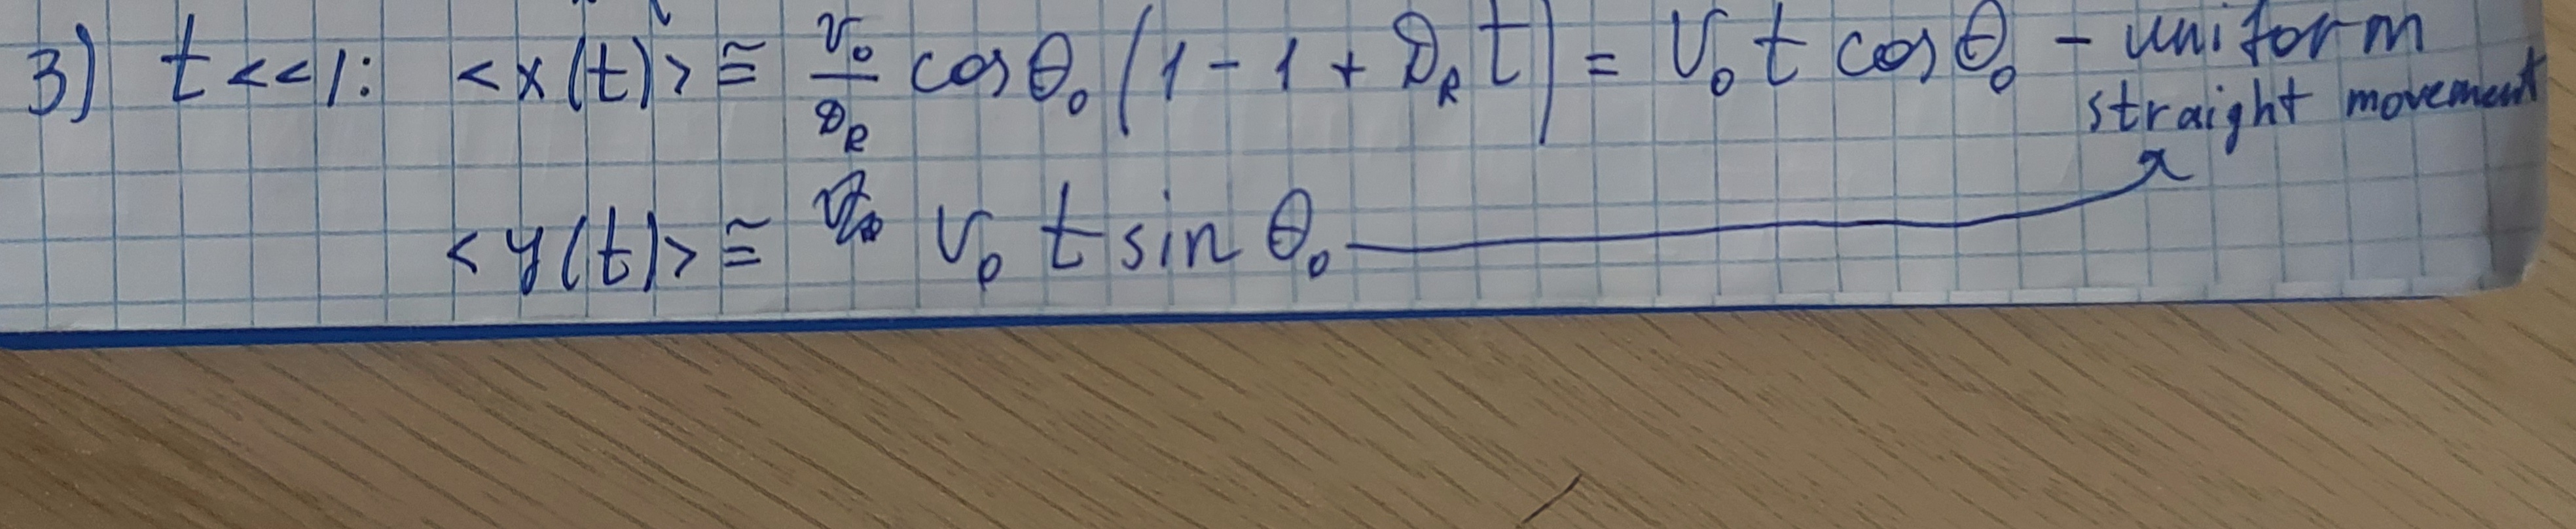 3) t << 1: <x(t)> ≅ v₀/D_R cos θ₀ (1 - 1 + D_R t) = v₀ t cos θ₀ - uniform
straight movement
<y(t)> ≅ v₀ t sin θ₀